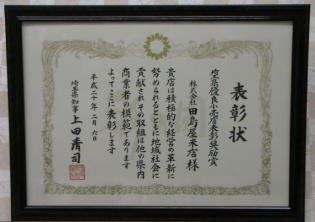 表彰状
埼玉県優良小売店表彰奨励賞
株式会社 田島屋米店様
貴店は積極的な経営の革新に
努められるとともに地域社会に
貢献されその取組は他の県内
商業者の模範であります
よってここに表彰します
平成二十年二月六日
埼玉県知事 上田清司